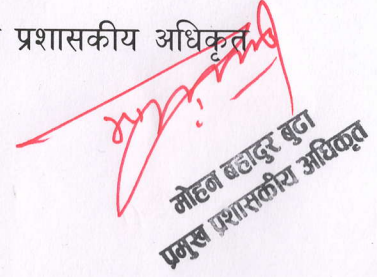 प्रशासकीय अधिकृत
मोहन बहादुर बुढा
प्रमुख प्रशासकीय अधिकृत